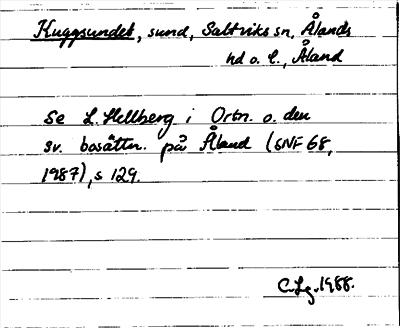 Kuggsundet, sund, Saltviks sn, Ålands
hd o. l., Åland
Se L. Hellberg i Ortn. o. den
sv. bosättn. på Åland (SNF 68,
1987), s 129.
C.Lg. 1988.